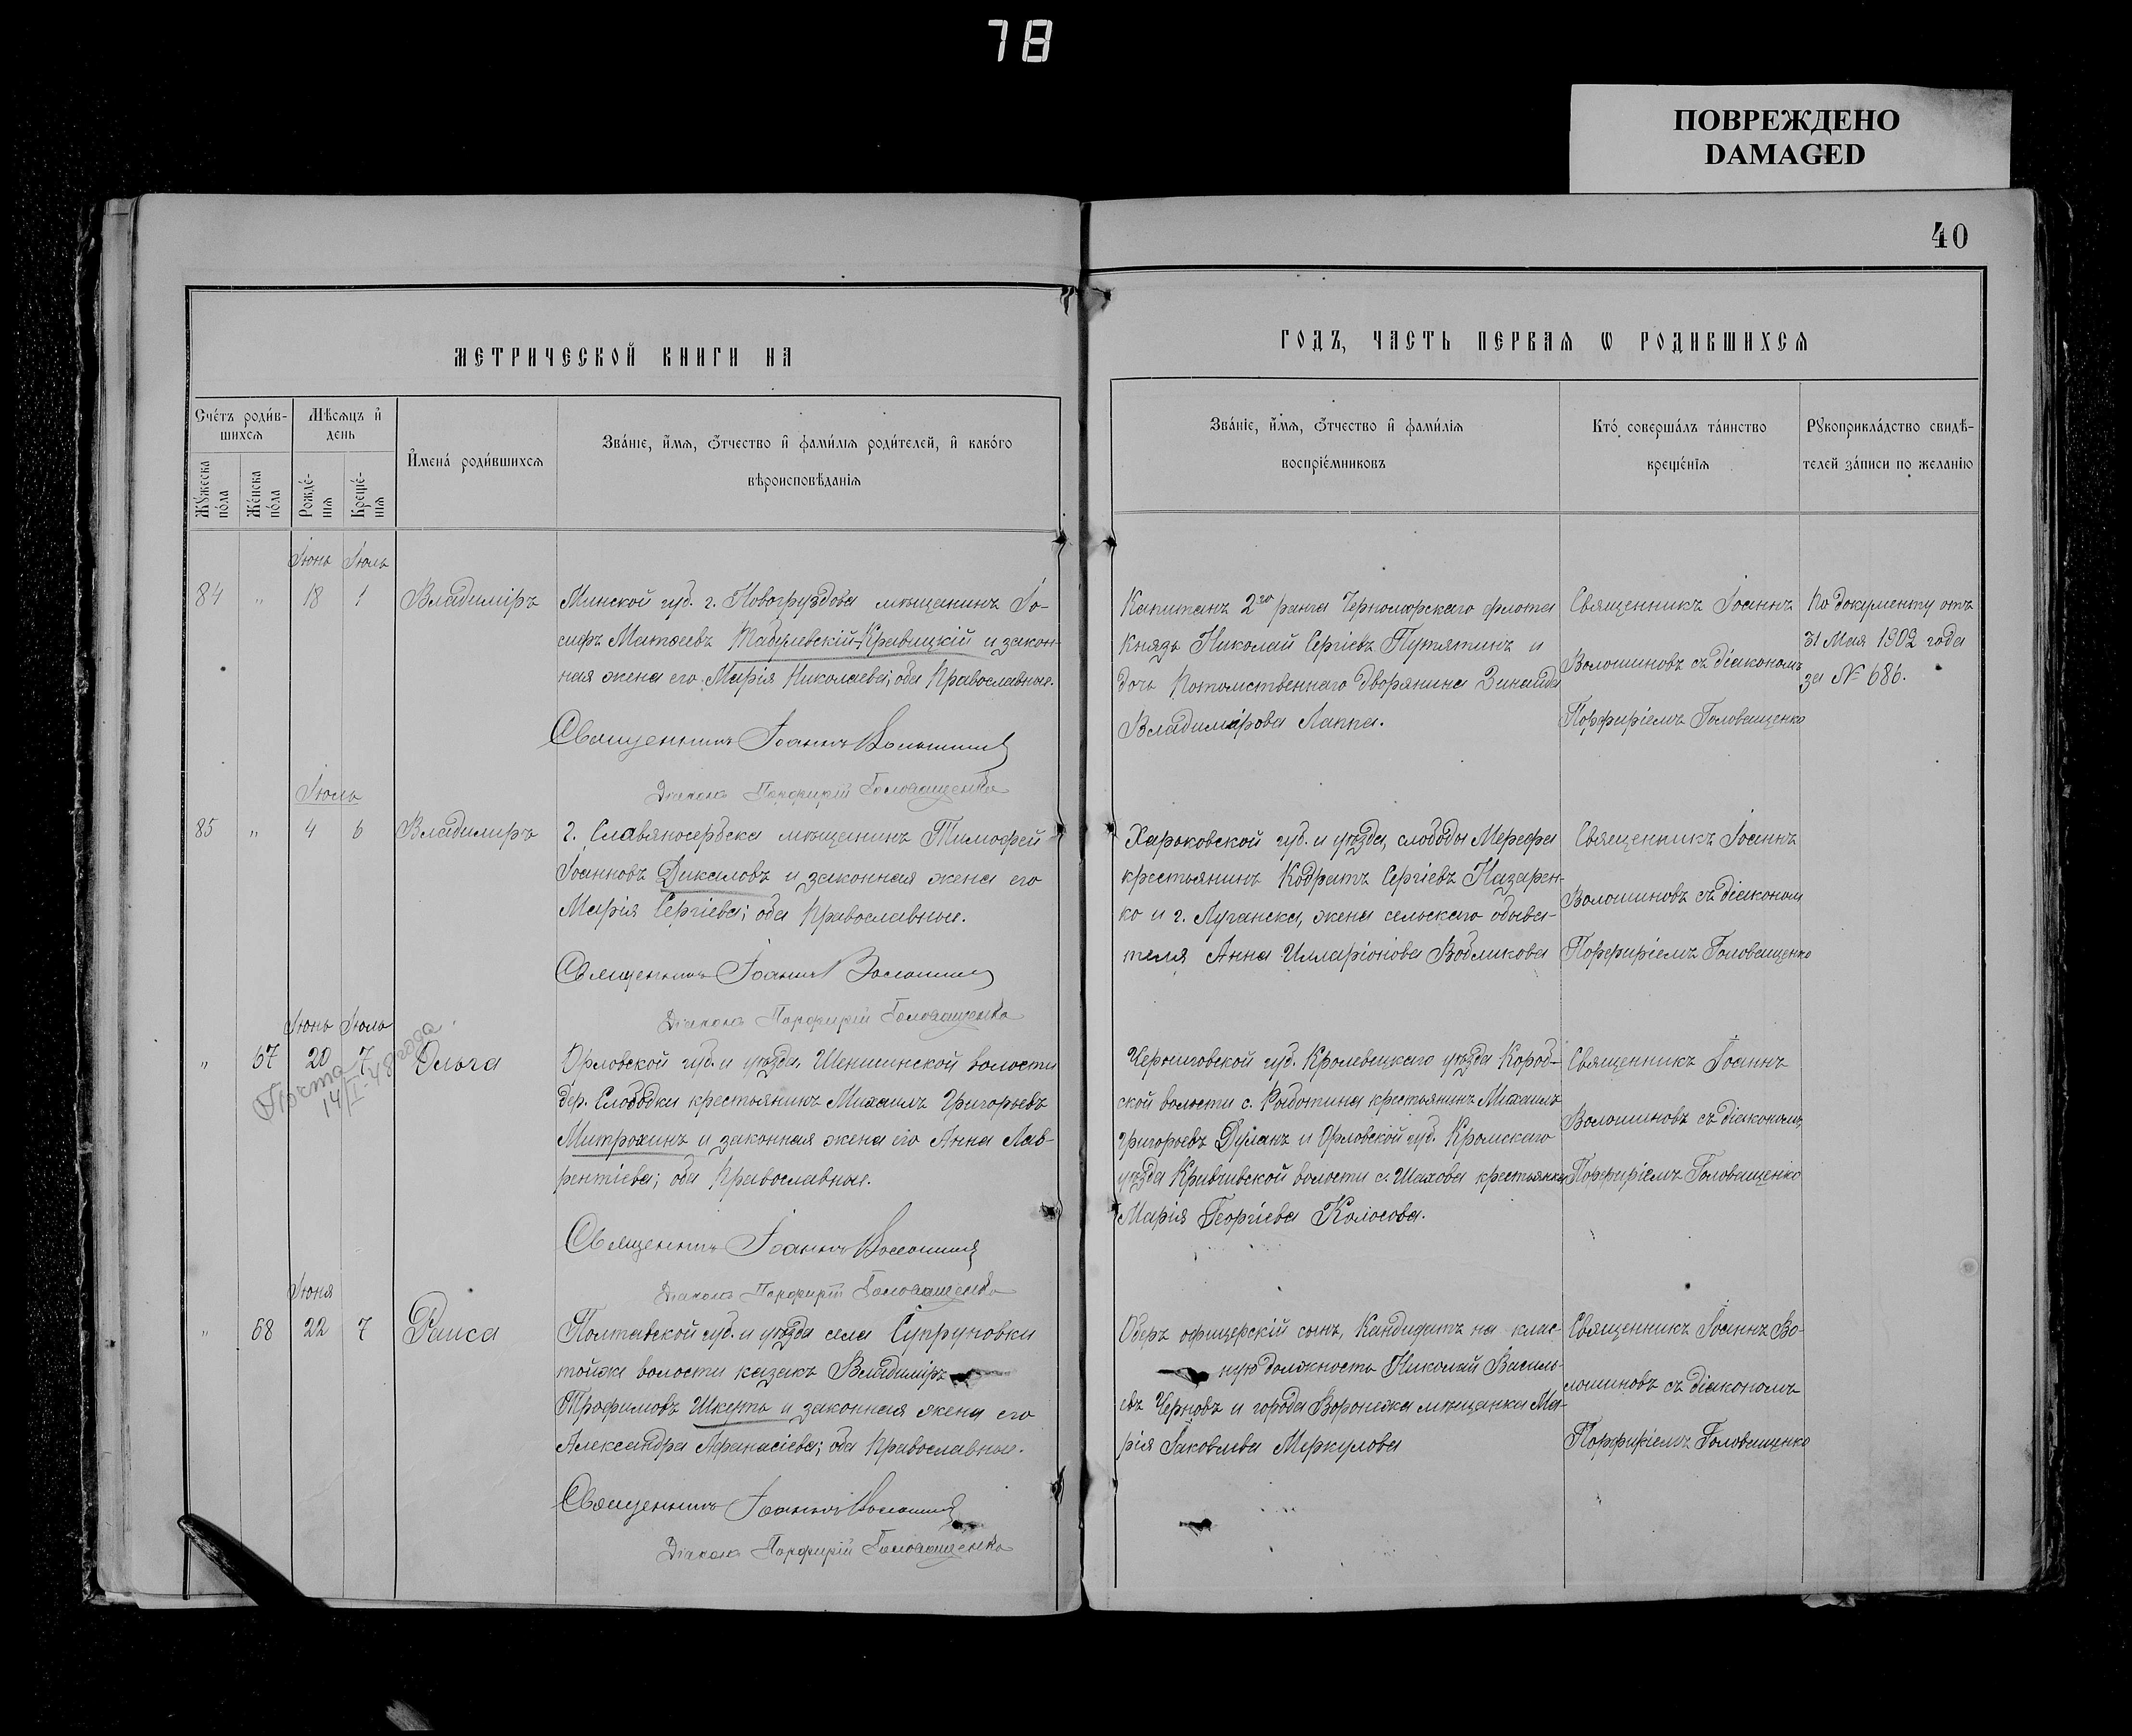 78
ПОВРЕЖДЕНО
DAMAGED
40
МЕТРИЧЕСКОЙ КНИГИ НА
ГОДЪ, ЧАСТЬ ПЕРВАЯ Ѡ РОДИВШИХСЯ
Счетъ родив-
шихся
Мѣсяцъ и
день
Мужеска
пола
Женска
пола
Рожде-
нія
Креще-
нія
Имена родившихся
Званіе, имя, отчество и фамилія родителей, и какого
вѣроисповѣданія
Званіе, имя, отчество и фамилія
воспріемниковъ
Кто совершалъ таинство
крещенія
Рукоприкладство свидѣ-
телей записи по желанію
Іюнь Іюль
84 " 18 1 Владиміръ
Минской губ. г. Новогрудова мѣщанинъ Іо-
сифъ Матѳеевъ Кравицкій и закон-
ная жена его Марія Николаева; оба Православные.
Священникъ Іоаннъ Волошинов
Діаконъ Порфирій Головащенко
Капитанъ 2го ранга Черноморскаго флота
Князь Николай Сергіевъ Путятинъ и
дочь Потомственнаго дворянина Зинаида
Владимірова Лаппа.
Священникъ Іоаннъ
Волошиновъ съ діакономъ
Порфиріемъ Головащенко
По документу отъ
31 Мая 1902 года
за № 686.
Іюль
85 " 4 6 Владиміръ
г. Славяносербска мѣщанинъ Тимофей
Іоанновъ Дикаловъ и законная жена его
Марія Сергіева; оба Православные.
Священникъ Іоаннъ Волошинов
Діаконъ Порфирій Головащенко
Харьковской губ. и уѣзда, слободы Мерефа
крестьянинъ Кодратъ Сергіевъ Назарен-
ко и г. Луганска, жена сельскаго обыва-
теля Анна Илларіонова Вобликова
Священникъ Іоаннъ
Волошиновъ съ діакономъ
Порфиріемъ Головащенко
Іюнь Іюль
" 67 20 7 Ольга
14/I-48 года.
Орловской губ. и уѣзда, Шеншинской волости
дер. Слободки крестьянинъ Михаилъ Григорьевъ
Митрохинъ и законная жена его Анна Лав-
рентіева; оба Православные.
Священникъ Іоаннъ Волошинов
Діаконъ Порфирій Головащенко
Черниговской губ. Кролевецкаго уѣзда Короб-
ской волости с. Рыботина крестьянинъ Михаилъ
Григорьевъ Дуланъ и Орловской губ. Кромскаго
уѣзда Кривчивской волости с. Шахова крестьянка
Марія Георгіева Колосова.
Священникъ Іоаннъ
Волошиновъ съ діакономъ
Порфиріемъ Головащенко
Іюня
" 68 22 7 Раиса
Полтавской губ. и уѣзда села Супруновки
тойже волости казакъ Владиміръ
Трофимовъ Шкерть и законная жена его
Александра Афанасіева; оба Православные.
Священникъ Іоаннъ Волошинов
Діаконъ Порфирій Головащенко
Оберъ офицерскій сынъ, Кандидатъ на клас-
ную должность Николай Василь-
евъ Черновъ и города Воронежа мѣщанка Ма-
рія Іаковлева Меркулова
Священникъ Іоаннъ Во-
лошиновъ съ діакономъ
Порфиріемъ Головащенко